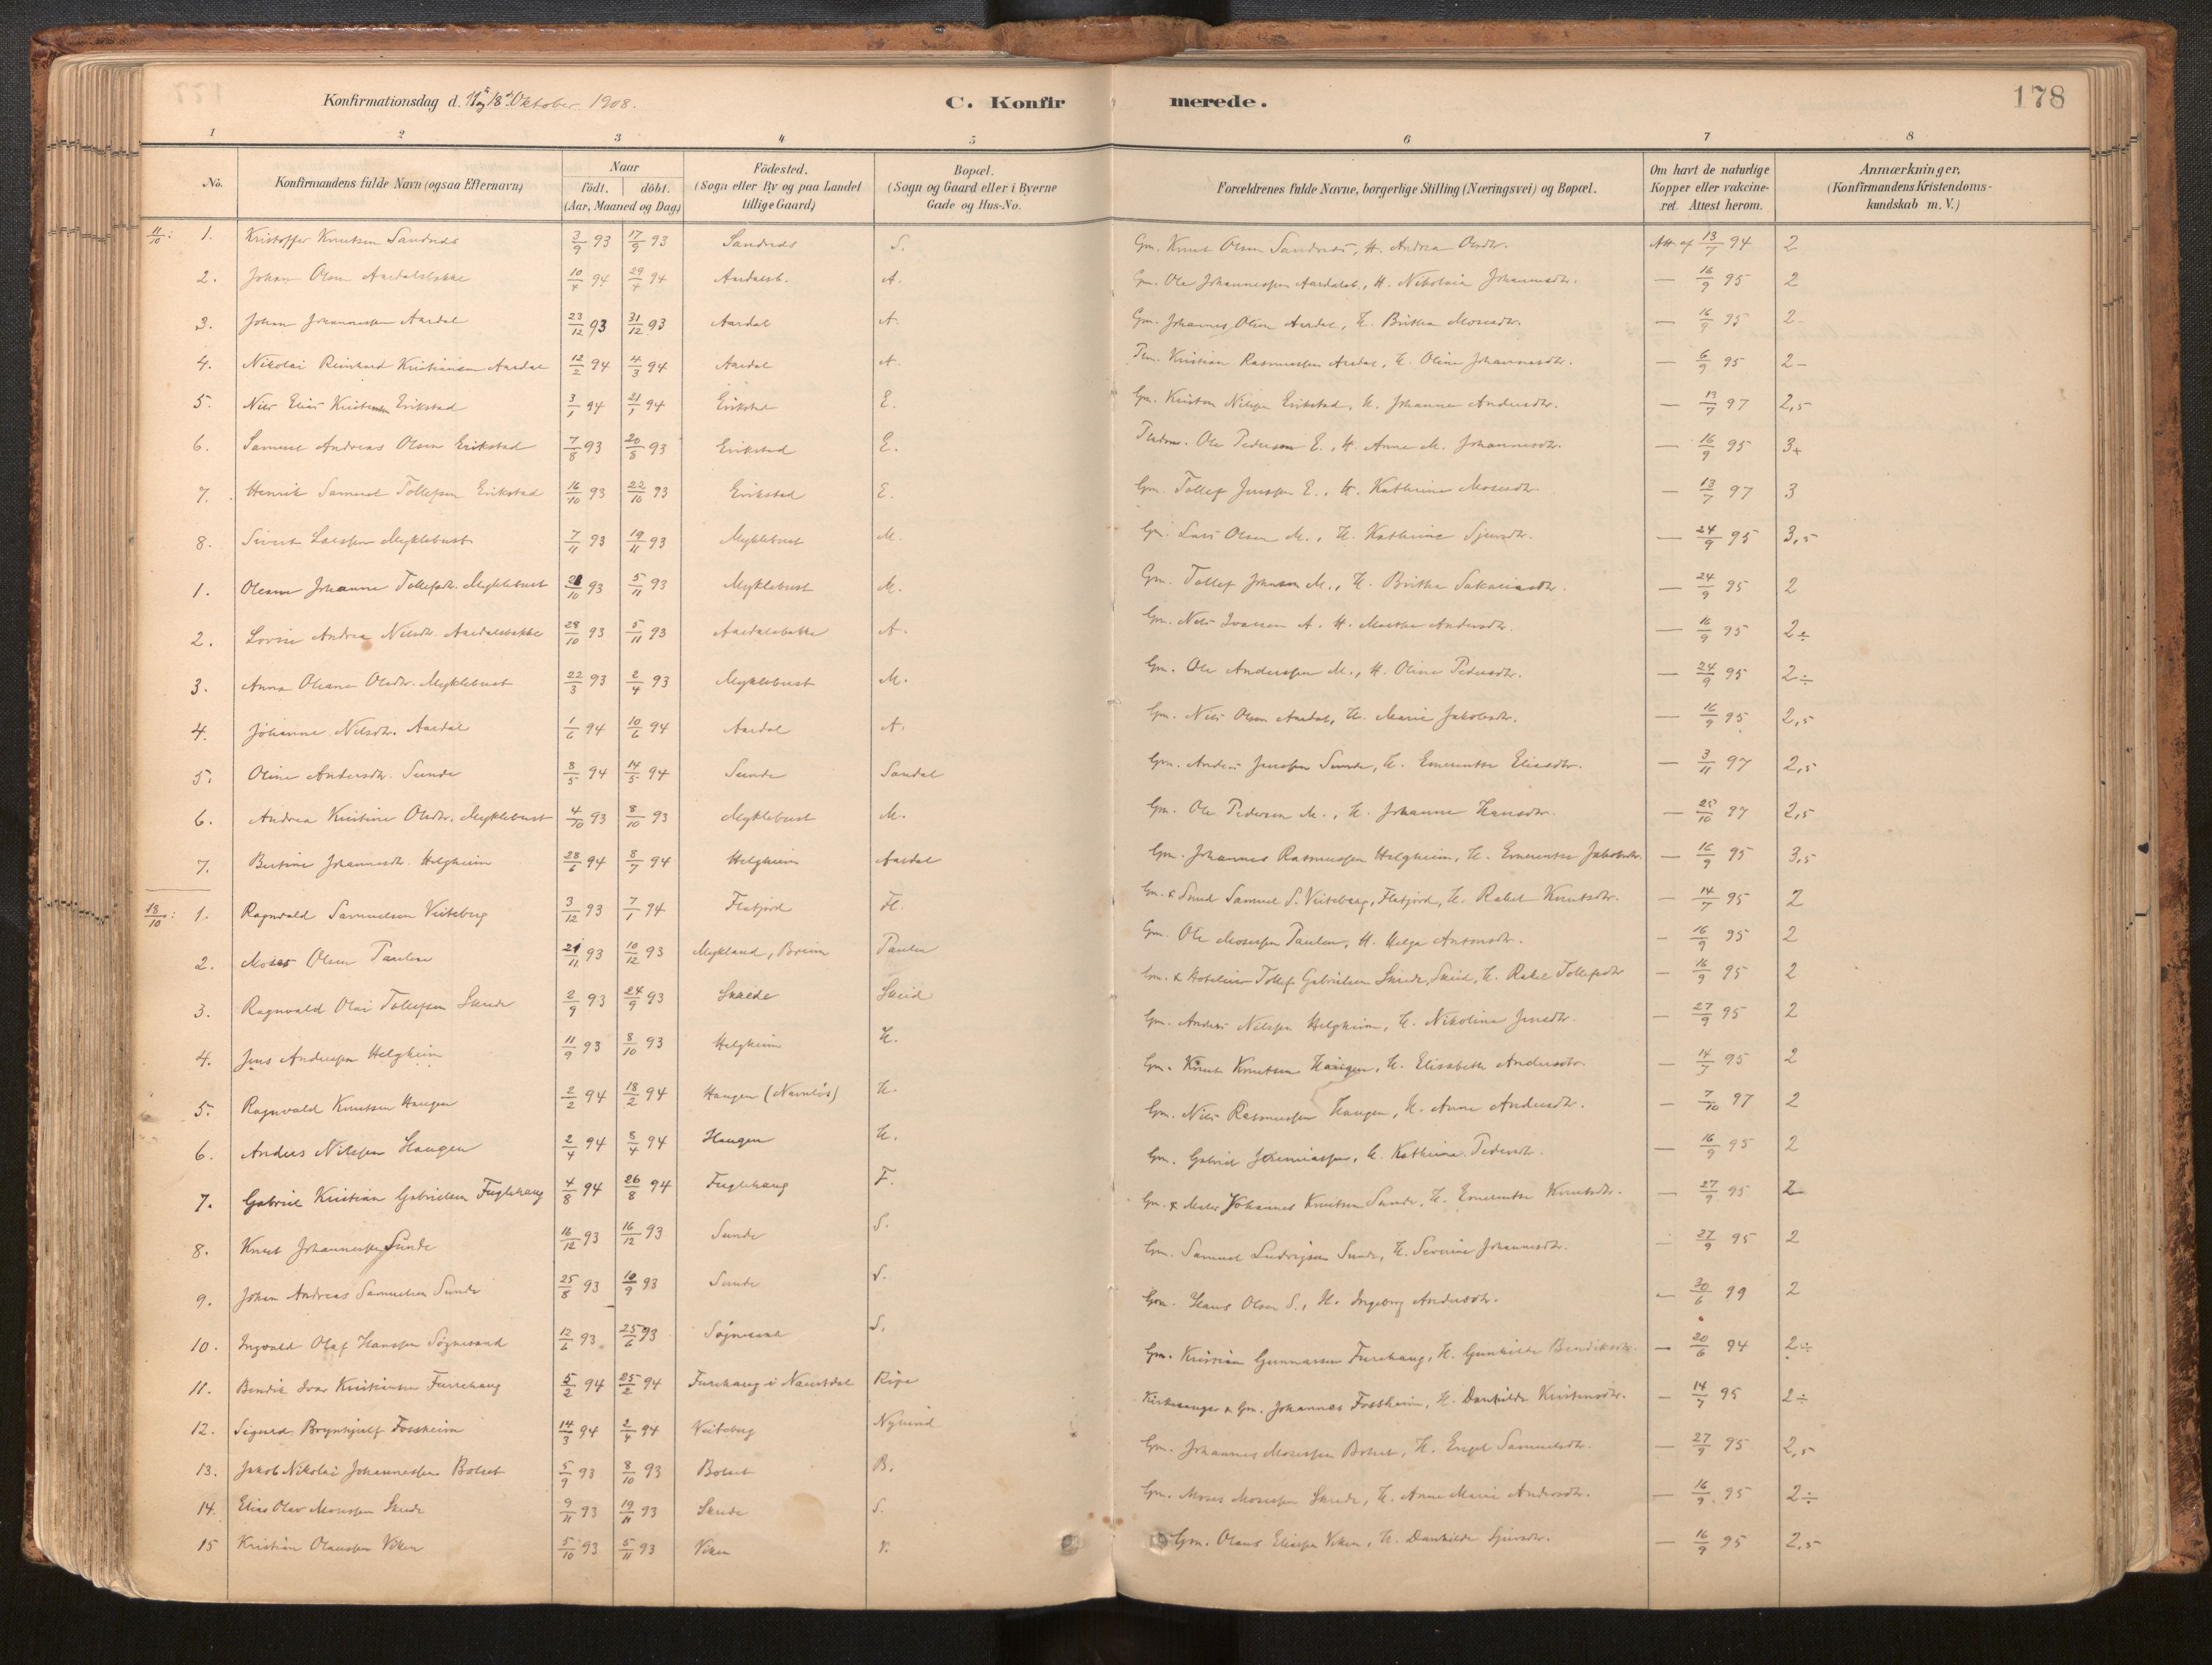 178
Konfirmationsdag d. 11te og 18de Oktober 1908.
C. Konfir merede.
1 2 3 4 5 6 7 8
No.
Konfirmandens fulde Navn (ogsaa Efternavn)
Naar
födt. döbt.
(Aar, Maaned og Dag)
Födested.
(Sogn eller By og paa Landet
tillige Gaard)
Bopæl.
(Sogn og Gaard eller i Byerne
Gade og Hus-No.
Forældrenes fulde Navne, borgerlige Stilling (Næringsvei) og Bopæl.
Om havt de naturlige
Kopper eller vakcine-
ret. Attest herom.
Anmærkninger,
(Konfirmandens Kristendoms-
kundskab m. V.)
11/10: 1. Kristoffer Knutsen Sandnes 3/9 93 17/9 93 Sandnes S. Gm. Knut Olsen Sandnes, H. Andrea Olsdtr. Att. af 13/7 94 2
2. Johan Olsen Aardalsbakke 10/4 94 29/4 94 Aardalsb. A. Gm. Ole Johannessen Aardalsb., H. Nikolaia Johannesdtr. — 16/9 95 2
3. Johan Johannessen Aardal 23/12 93 31/12 93 Aardal A. Gm. Johannes Olsen Aardal, H. Brithe Mosesdtr. — 16/9 95 2-
4. Nikolai Reinhard Kristiansen Aardal 12/2 94 4/3 94 Aardal A. Kristian Rasmussen Aardal, H. Oline Johannesdtr. — 6/9 95 2-
5. Nils Elias Kristensen Erikstad 3/1 94 21/1 94 Erikstad E. Gm. Kristen Nilsen Erikstad, H. Johanne Andersdtr. — 13/7 97 2,5
6. Samuel Andreas Olsen Erikstad 7/8 93 20/8 93 Erikstad E. Ole Pedersen E., H. Anne M. Johannesdtr. — 16/9 95 3+
7. Henrik Samuel Tollefsen Erikstad 16/10 93 22/10 93 Erikstad E. Gm. Tollef Jensen E., H. Kathrine Mosesdtr. — 13/7 97 3
8. Sivert Larssen Myklebust 7/11 93 19/11 93 Myklebust M. Gm. Lars Olsen M., H. Kathrine Sjursdtr. — 24/9 95 3,5
1. Oleane Johanne Tollefsdtr. Myklebust 21/10 93 5/11 93 Myklebust M. Gm. Tollef Johnsen M., H. Brithe Sakariasdtr. — 24/9 95 2
2. Lovise Andrea Nilsdtr. Aardalsbakke 28/10 93 5/11 93 Aardalsbakke A. Gm. Nils Ivarsen A. H. Marthe Andersdtr. — 16/9 95 2÷
3. Anna Oleana Olsdtr. Myklebust 22/3 93 2/4 93 Myklebust M. Gm. Ole Anderssen M., H. Oline Pedersdtr. — 24/9 95 2÷
4. Johanne Nilsdtr. Aardal 1/6 94 10/6 94 Aardal A. Gm. Nils Olsen Aardal, H. Marie Jakobsdtr. — 16/9 95 2,5
5. Oline Andersdtr. Sunde 8/5 94 14/5 94 Sunde Sandal Gm. Anders Jenssen Sunde, H. Emerentse Eliasdtr. — 3/11 97 2,5
6. Andrea Kristine Olsdtr. Myklebust 4/10 93 8/10 93 Myklebust M. Gm. Ole Pedersen M., H. Johanne Hansdtr. — 25/10 97 2,5
7. Bertine Johannesdtr. Helgheim 28/6 94 8/7 94 Helgheim Aardal Gm. Johannes Rasmussen Helgheim, H. Emerentse Jakobsdtr. — 16/9 95 3,5
18/10: 1. Ragnvald Samuelsen Veiteberg 3/12 93 7/1 94 Flatjord Fl. Gm. & Smed Samuel S. Veiteberg, Flatjord, H. Rakel Knutsdtr. — 14/7 95 2
2. Moses Olsen Paulen 21/11 93 10/12 93 Mykland, Breim Paulen Gm. Ole Mosessen Paulen, H. Helga Antonsdtr. — 16/9 95 2
3. Ragnvald Olai Tollefsen Skrede 2/9 93 24/9 93 Skrede Skeid Gm. & Hoteleier Tollef Gabrielsen Skrede, Skeid, H. Rakel Tollefsdtr. — 16/9 95 2
4. Jens Anderssen Helgheim 11/9 93 8/10 93 Helgheim H. Gm. Anders Nilssen Helgheim, H. Nikoline Jensdtr. — 27/9 95 2
5. Ragnvald Knutsen Haugen 2/2 94 18/2 94 Haugen (Navnløs) H. Gm. Knut Knutsen Haugen, H. Elisabeth Andersdtr. — 14/7 95 2
6. Anders Nilssen Haugen 2/4 94 8/4 94 Haugen H. Gm. Nils Rasmussen Haugen, H. Anne Andersdtr. — 7/10 97 2
7. Gabriel Kristian Gabrielsen Fuglehaug 4/8 94 26/8 94 Fuglehaug F. Gm. Gabriel Jeremiassen, H. Kathrine Pedersdtr. — 16/9 95 2
8. Knut Johannessen Sunde 16/12 93 16/12 93 Sunde S. Gm. & Maler Johannes Knutsen Sunde, H. Emerentse Knutsdtr. — 27/9 95 2
9. Johan Andreas Samuelsen Sunde 25/8 93 10/9 93 Sunde S. Gm. Samuel Ludvigsen Sunde, H. Severine Johannesdtr. — 27/9 95 2
10. Ingvald Olaf Hanssen Søgnesand 12/6 93 25/6 93 Søgnesand S. Gm. Hans Olsen S., H. Ingeborg Andersdtr. — 30/6 99 2
11. Bendik Ivar Kristiansen Furrehaug 5/2 94 25/2 94 Furehaug i Naustdal Ripe Gm. Kristian Gunnarssen Furehaug, H. Gunhilde Bendiksdtr. — 20/6 94 2÷
12. Sigurd Brynhjulf Fossheim 14/3 94 2/4 94 Veiteberg Kirkesanger & Gm. Johannes Fossheim, H. Danhilde Kristensdtr. — 14/7 95 2÷
13. Jakob Nikolai Johannessen Bolset 5/9 93 8/10 93 Bolset B. Gm. Johannes Mosessen Bolset, H. Engel Samuelsdtr. — 27/9 95 2,5
14. Elias Olav Mosessen Skrede 9/11 93 19/11 93 Skrede S. Gm. Moses Mosessen Skrede, H. Anne Marie Andersdtr. — 16/9 95 2÷
15 Kristian Olaussen Viken 5/10 93 5/11 93 Viken V. Gm. Olaus Eliassen Viken, H. Danhilde Sjursdtr. — 16/9 95 2,5